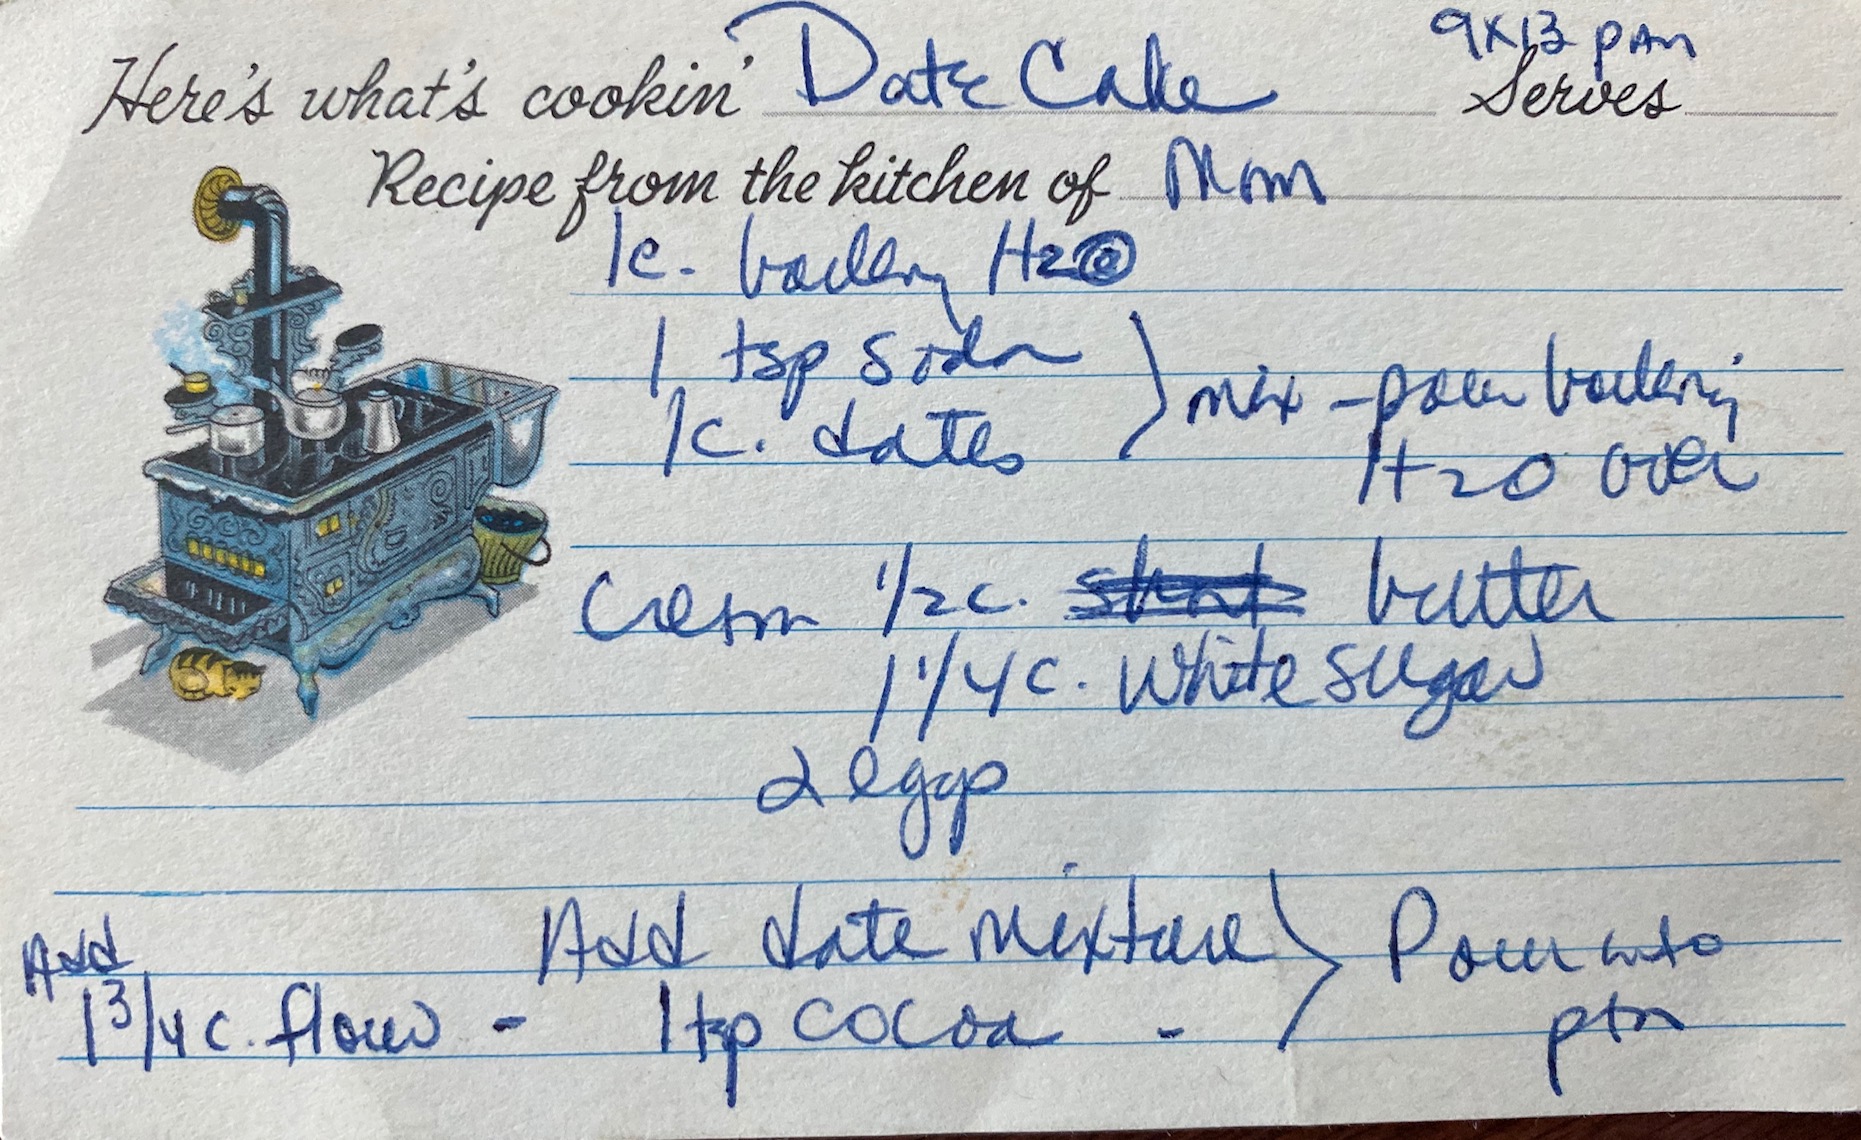 9x13 pan
Here's what's cookin' Date Cake Serves
Recipe from the kitchen of Mom
1c. boiling H2O
1 tsp soda
1c. dates
mix - pour boiling
H2O over
Cream 1/2 c. short butter
1 1/4 c. white sugar
2 eggs
Add date mixture
Add
1 3/4 c. flour - 1 tsp cocoa -
Pour into
pan